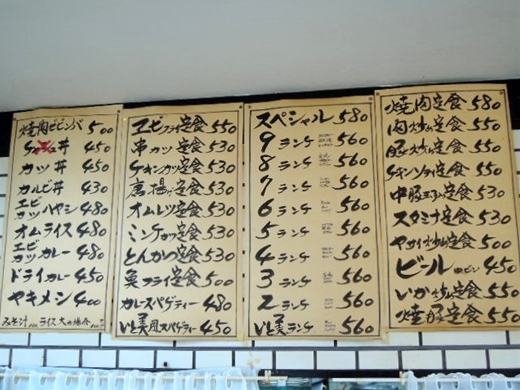 焼肉ビビンバ 500
450
カツ丼 450
カルビ丼 430
エビカツハヤシ 480
オムライス 480
エビカツカレー 480
ドライカレー 450
ヤキメシ 400
みそ汁 ライス大の場合
エビフライ定食 550
串カツ定食 530
チキンカツ定食 530
唐揚げ定食 530
オムレツ定食 530
ミンチカツ定食 530
とんかつ定食 530
魚フライ定食 500
カレースパゲティー 480
いと美風スパゲティー 450
スペシャル 580
9ランチ 560
8ランチ 560
7ランチ 560
6ランチ 560
5ランチ 560
4ランチ 560
3ランチ 560
2ランチ 560
いと美ランチ 560
焼肉定食 580
肉炒め定食 550
豚炒め定食 550
チキンソテー定食 550
中豚玉子定食 530
スタミナ定食 530
やさい炒め定食 500
ビール 中ビン 450
いか炒め定食 550
焼豚定食 550